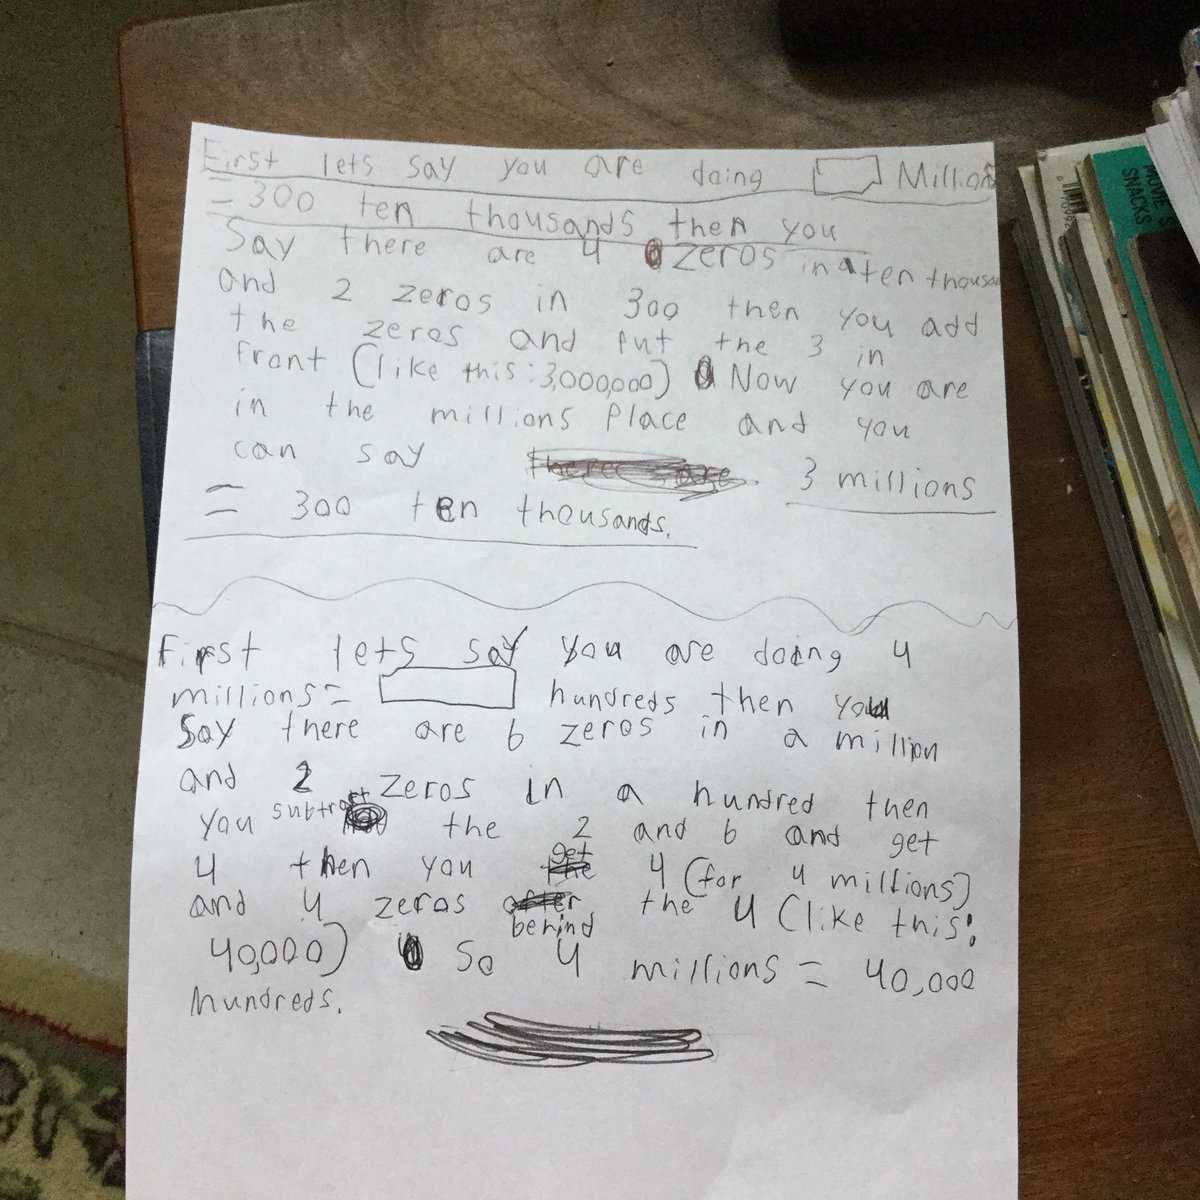 First lets say you are doing Millions
= 300 ten thousands then you
Say there are 4 zeros in a ten thousand
and 2 zeros in 300 then you add
the zeros and put the 3 in
front (like this: 3,000,000) Now you are
in the millions Place and you
can say 3 millions
= 300 ten thousands.
First lets say you are doing 4
millions = hundreds then you
Say there are 6 zeros in a million
and 2 zeros in a hundred then
you subtract the 2 and 6 and get
4 then you get 4 (for 4 millions)
and 4 zeros behind the 4 (like this:
40,000) So 4 millions = 40,000
hundreds.
SNACKS